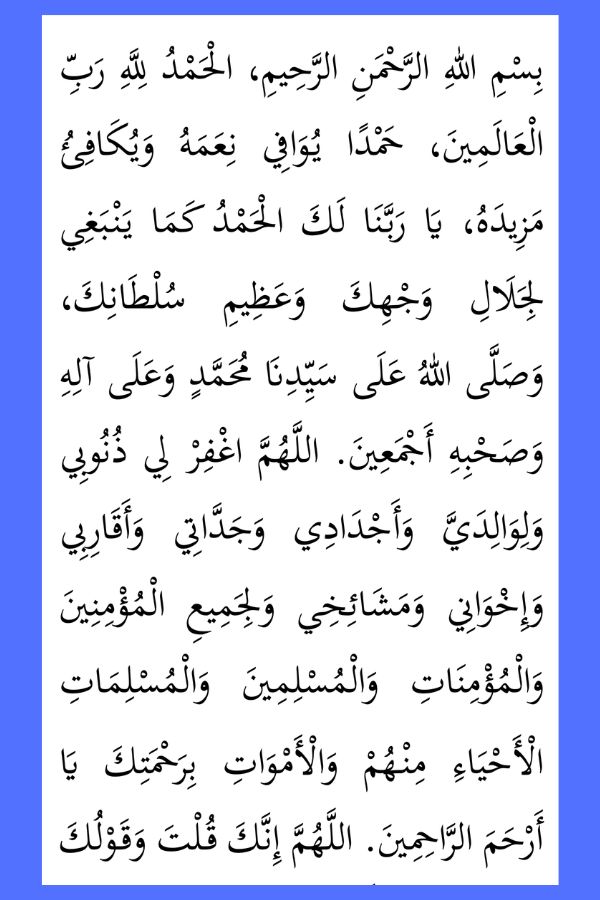 بِسْمِ اللهِ الرَّحْمَنِ الرَّحِيمِ، الْحَمْدُ لِلَّهِ رَبِّ
الْعَالَمِينَ، حَمْدًا يُوَافِي نِعَمَهُ وَيُكَافِئُ
مَزِيدَهُ، يَا رَبَّنَا لَكَ الْحَمْدُ كَمَا يَنْبَغِي
لِجَلَالِ وَجْهِكَ وَعَظِيمِ سُلْطَانِكَ،
وَصَلَّى اللهُ عَلَى سَيِّدِنَا مُحَمَّدٍ وَعَلَى آلِهِ
وَصَحْبِهِ أَجْمَعِينَ. اللَّهُمَّ اغْفِرْ لِي ذُنُوبِي
وَلِوَالِدَيَّ وَأَجْدَادِي وَجَدَّاتِي وَأَقَارِبِي
وَإِخْوَانِي وَمَشَائِخِي وَلِجَمِيعِ الْمُؤْمِنِينَ
وَالْمُؤْمِنَاتِ وَالْمُسْلِمِينَ وَالْمُسْلِمَاتِ
الْأَحْيَاءِ مِنْهُمْ وَالْأَمْوَاتِ بِرَحْمَتِكَ يَا
أَرْحَمَ الرَّاحِمِينَ. اللَّهُمَّ إِنَّكَ قُلْتَ وَقَوْلُكَ